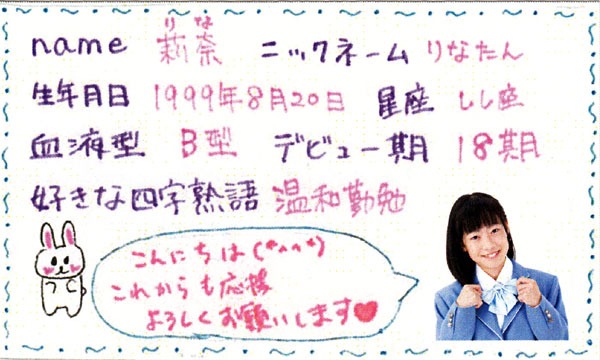 りな
name 莉奈 ニックネーム りなたん
生年月日 1999年8月20日 星座 しし座
血液型 B型 デビュー期 18期
好きな四字熟語 温和勤勉
こんにちは(*^^*)
これからも応援
よろしくお願いします♥